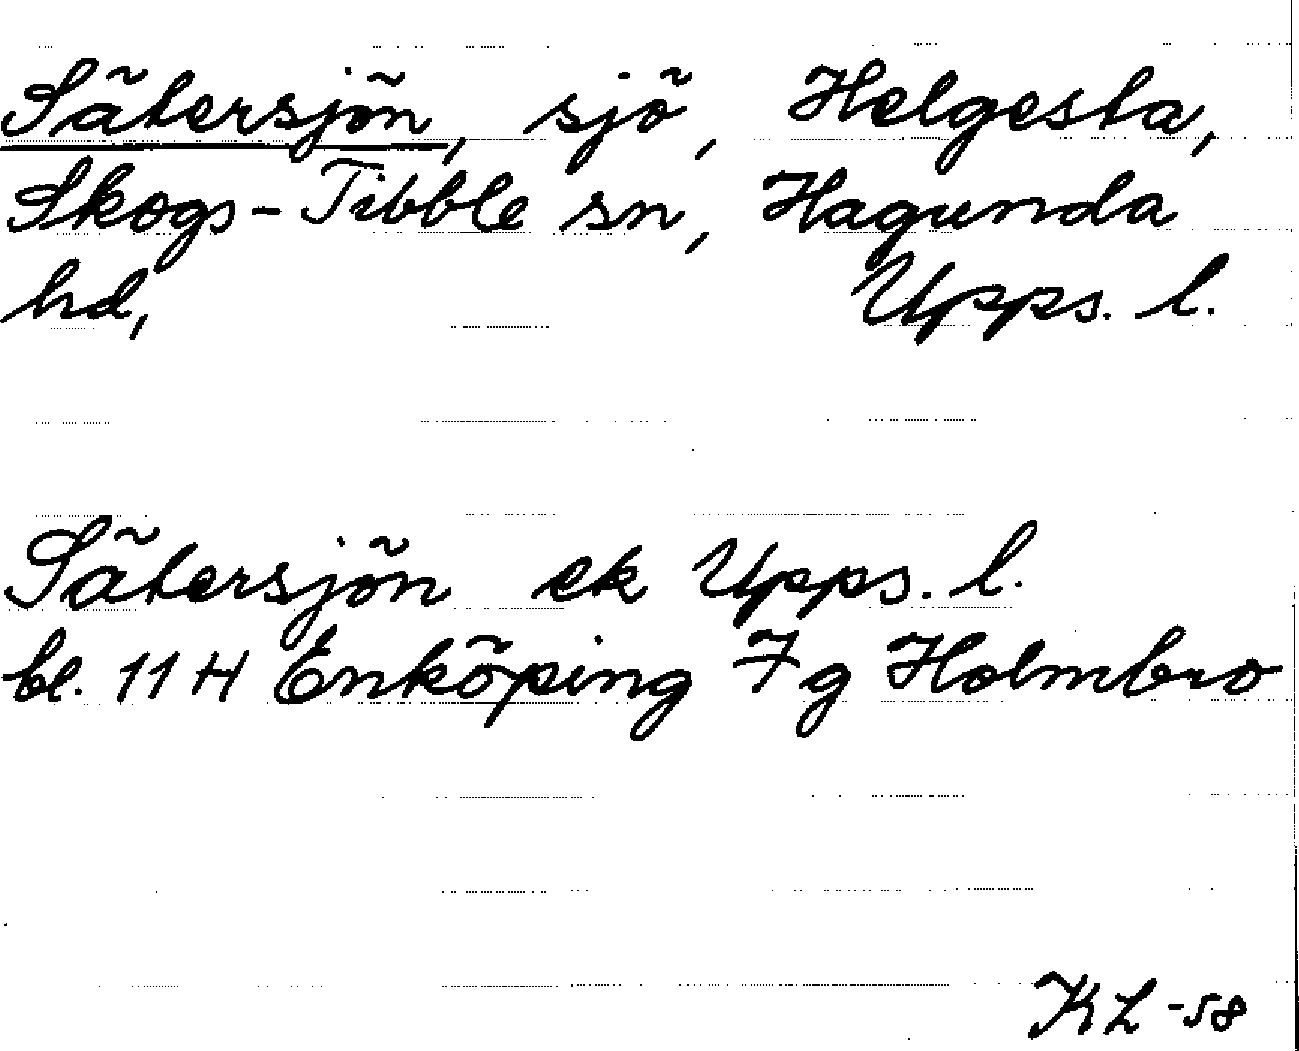 Sätersjön, sjö, Helgesta,
Skogs-Tibble sn, Hagunda
hd, Upps. l.
Sätersjön ek Upps. l.
bl. 11 H Enköping 7 g Holmbro
KL -58